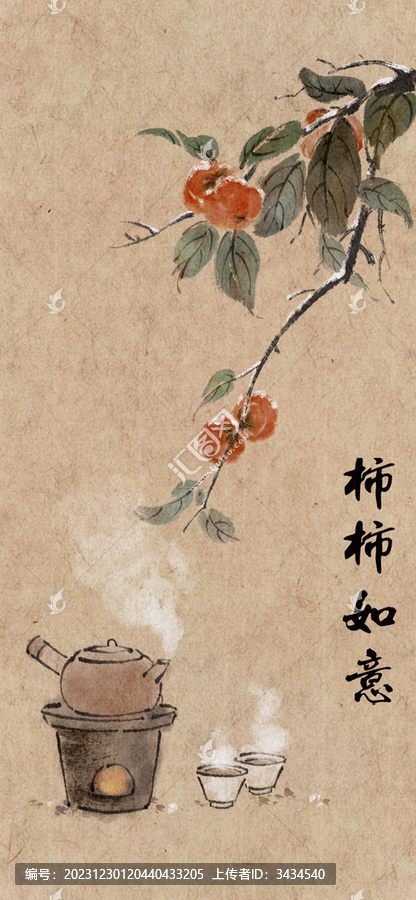 柿柿如意
汇图网
编号：20231230120440433205 上传者ID：3434540